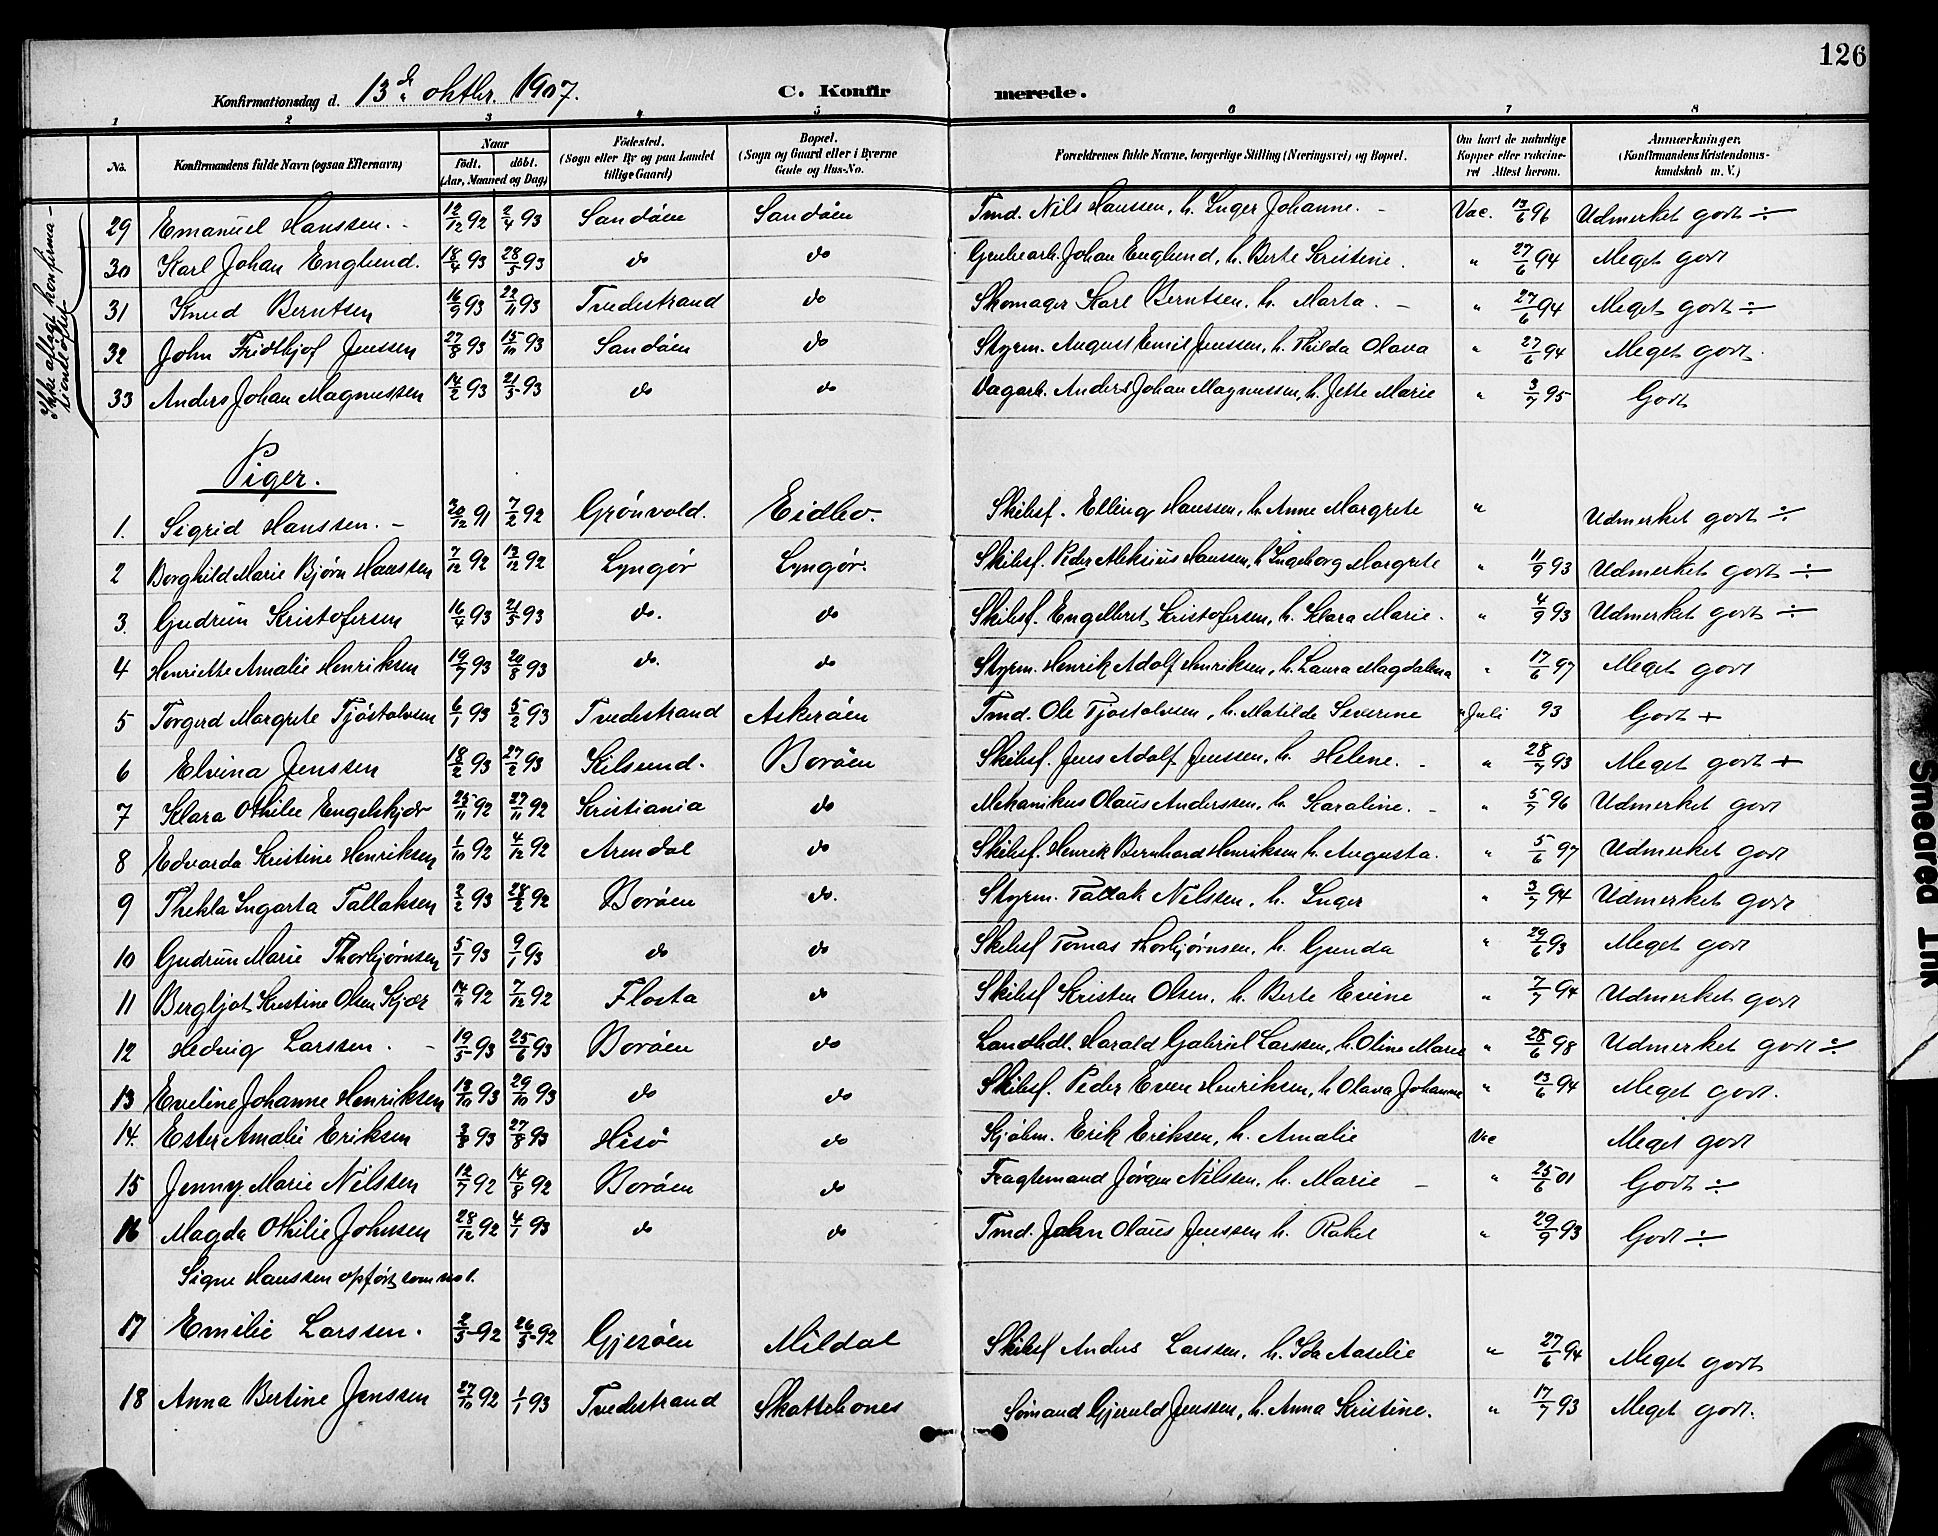 126
Konfirmationsdag d. 13de oktbr. 1907. C. Konfirmerede.
1 2 3 4 5 6 7 8
No. Konfirmandens fulde Navn (ogsaa Efternavn) Naar født. døbt. (Aar, Maaned og Dag) Fødested. (Sogn eller By og paa Landet tillige Gaard) Bopæl. (Sogn og Gaard eller i Byerne Gade og Hus-No. Forældrenes fulde Navne, borgerlige Stilling (Næringsvei) og Bopæl. Om havt de naturlige Kopper eller vakcineret Attest herom. Anmærkninger. (Konfirmandens Kristendomskundskab m. V.)
Ikke aflagt konfirmationsløftet
29 Emanuel Hanssen. 12/12 92 2/4 93 Sandøen Sandøen Tmd. Nils Hanssen, h. Inger Johanne. Vac. 13/6 96 Udmerket godt ÷
30 Karl Johan Englund. 18/4 93 28/5 93 do do Grubearb. Johan Englund, h. Berte Kristine. " 27/6 94 Meget godt
31 Knud Berntsen 16/9 93 22/11 93 Tvedestrand do Skomager Karl Berntsen, h. Marta. " 27/6 94 Meget godt ÷
32 John Fridthjof Jenssen 27/8 93 15/10 93 Sandøen do Styrm. August Emil Jenssen, h. Thilda Olava " 27/6 94 Meget godt.
33 Anders Johan Magnussen 14/2 93 21/5 93 do do Dagarb. Anders Johan Magnussen, h. Jette Marie " 3/7 95 Godt
Piger.
1. Sigrid Hanssen. 20/12 91 7/2 92 Grønvold. Eidbo. Skibsf. Elling Hanssen, h. Anne Margrete " Udmerket godt ÷
2 Borghild Marie Bjørn Hanssen 7/12 92 13/12 92 Lyngør Lyngør. Skibsf. Peder Aleksius Hanssen, h Ingeborg Margrete " 11/9 93 Udmerket godt ÷
3. Gudrun Kristofersen 16/4 93 21/5 93 do. do Skibsf. Engelbret Kristofersen, h. Klara Marie. " 4/9 93 Udmerket godt ÷
4 Henriette Amalie Henriksen 19/7 93 20/8 93 do. do Styrm. Henrik Adolf Henriksen, h. Laura Magdalena " 17/6 97 Meget godt
5 Torgerd Margrete Tjøstolvsen 6/1 93 5/2 93 Tvedestrand Askerøen Tmd. Ole Tjøstolvsen, h. Matilde Severine " Juli 93 Godt +
6 Elvina Jenssen 18/2 93 27/2 93 Kilsund. Borøen Skibsf. Jens Adolf Jenssen, h. Helene. " 28/7 93 Meget godt +
7 Klara Othilie Engelskjær 25/11 92 27/11 92 Kristiania do Mekanikus Olaus Anderssen, h. Karaline. " 5/7 96 Udmerket godt
8 Edvarda Kristine Henriksen 1/10 92 4/12 92 Arendal do Skibsf. Henrik Bernhard Henriksen h. Augusta. " 5/6 97 Udmerket godt
9 Thekla Ingarta Tallaksen 2/2 93 28/2 92 Borøen do. Styrm. Tallak Nilssen, h. Inger " 3/7 94 Udmerket godt
10 Gudrun Marie Thorbjørnsen 5/1 93 9/1 93 do do Skibsf Tomas Thorbjørnsen, h. Gunda " 29/6 93 Meget godt
11 Bergljot Kristine Olsen Kjær 14/11 92 7/12 92 Flosta do Skibsf Kristen Olsen, h. Berte Evine " 7/7 94 Udmerket godt
12 Hedvig Larssen. 19/5 93 25/6 93 Borøen do Landhdl. Harald Gabriel Larssen, h. Oline Marie " 28/6 98 Udmerket godt ÷
13 Eveline Johanne Henriksen 12/10 93 29/10 93 do do Skibsf. Peder Even Henriksen, h Olava Johanne " 13/6 94 Meget godt.
14. Ester Amalie Eriksen 3/8 93 27/8 93 Hisø do Kjøbm. Erik Eriksen, h. Amalie Vac Meget godt
15 Jenny Marie Nilssen 12/7 92 14/8 92 Borøen do Fragtemand Jørgen Nilssen, h. Marie " 25/6 01 Godt ÷
16 Magda Othilie Johnsen 28/12 92 4/1 93 do do Tmd. John Olaus Jenssen h. Rakel " 29/9 93 Godt ÷
Signe Hanssen opført som no 1.
17 Emilie Larssen. 2/5 92 26/5 92 Gjerøen Mildal Skibsf Anders Larssen, h. Ida Aaselie " 27/6 94 Meget godt
18 Anna Bertine Jenssen 27/10 92 1/1 93 Tvedestrand Skottebones Sømand Gjeruld Jenssen, h. Anna Kristine. " 17/7 93 Meget godt.
Smeared Ink